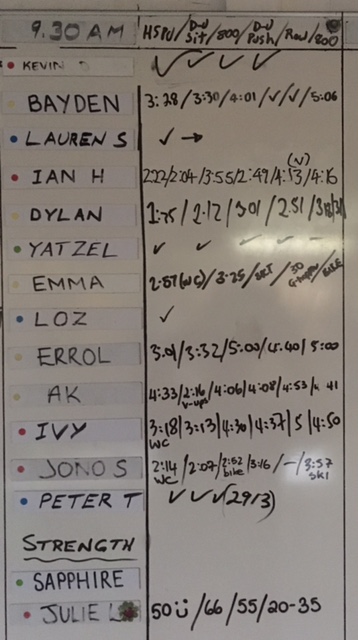 9.30 AM HSPU/D-U Sit/800/D-U Push/Row/800
KEVIN ✓ ✓ ✓ ✓
BAYDEN 3:28/3:30/4:01/✓/✓/5:06
LAUREN S ✓ →
IAN H 2:04/3:55/2:49/4:13/4:15
(✓)
DYLAN 2:12/3:01/2:51
YATZEL ✓ ✓ ✓ ✓
EMMA 2:57(WC)/3:25
LOZ ✓
ERROL 3:01/3:32/5:00/4:40/5:00
AK 4:33/2:16/4:06/4:08/4:53/ 41
V-ups
IVY 3:18|3:13|4:30|4:37|5|4:50
WC
JONO S 2:14/2:07/2:52/3:16/-/3:57
WC bike SKI
PETER T ✓ ✓ ✓(2913)
STRENGTH
SAPPHIRE
JULIE L 50/66/55/20-35